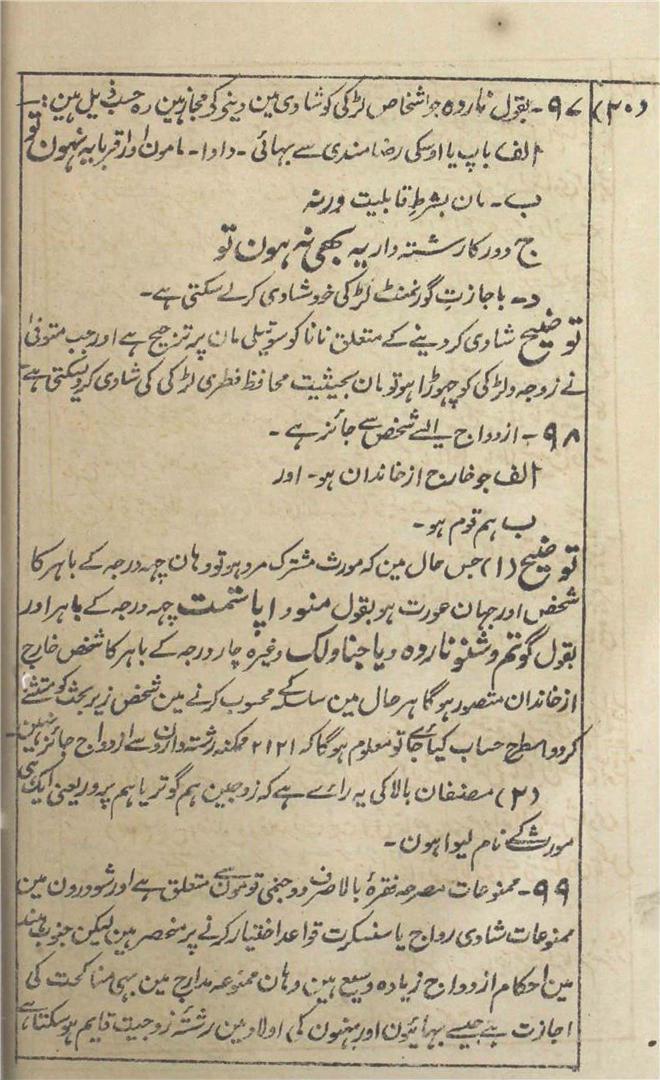 (۲۰) ۹۷- بقول ناروہ جو اشخاص لڑکی کو شادی مین دینی کو مجاز ہین وہ حسب ذیل ہین:-
الف باپ یا اوسکی رضامندی سے بہائی - دادا - مامون اور اقربا یہ نہون تو
ب - مان بشرط قابلیت ورنہ
ج دور کا رشتہ دار یہ بھی نہ ہون تو
د - با جازت گورنمنٹ لڑکی خود شادی کرلے سکتی ہے -
توضیح شادی کر دینے کے متعلق نانا کو سوتیلی مان پر ترجیح ہے اور جب متوفی
نے زوجہ و لڑکی کو چہوڑا ہو تو مان بحیثیت محافظ فطری لڑکی کی شادی کردیسکتی ہے
۹۸- ازدواج ایسے شخص سے جائز ہے -
الف جو خارج از خاندان ہو - اور
ب ہم قوم ہو -
توضیح (۱) جس حال مین کہ مورث مشترک مرد ہو تو وہان چہہ درجہ کے باہر کا
شخص اور جہان عورت ہو بقول منو و اپاستمت چہہ درجہ کے باہر اور
بقول گوتم وشنو ناروہ ویاجناولک وغیرہ چار درجہ کے باہر کا شخص خارج
از خاندان متصور ہوگا ہر حال مین سلسلہ کے محسوب کرنے مین شخص زیر بحث کو مستثنے
کردو اسطرح حساب کیا جائے تو معلوم ہوگا کہ ۲۱۲۱ ممکنہ رشتہ دارون سے ازدواج جائز نہین -
(۲) مصنفان بالا کی یہ رائے ہے کہ زوجین ہم گوتر یا ہم پرور یعنی ایک ہی
مورث کے نام لیوا ہون -
۹۹- ممنوعات مصرحہ فقرۂ بالا صرف دو جنمی قومون سے متعلق ہے اور شودرون مین
ممنوعات شادی رواج یا سنسکرت قواعد اختیار کرنے پر منحصر ہین لیکن جنوب ہند
مین احکام ازدواج زیادہ وسیع ہین وہان ممنوعہ مدارج مین بہی مناکحت کی
اجازت ہے جیسے بہائیون اور بہنون کی اولاد مین رشتۂ زوجیت قایم ہوسکتا ہے